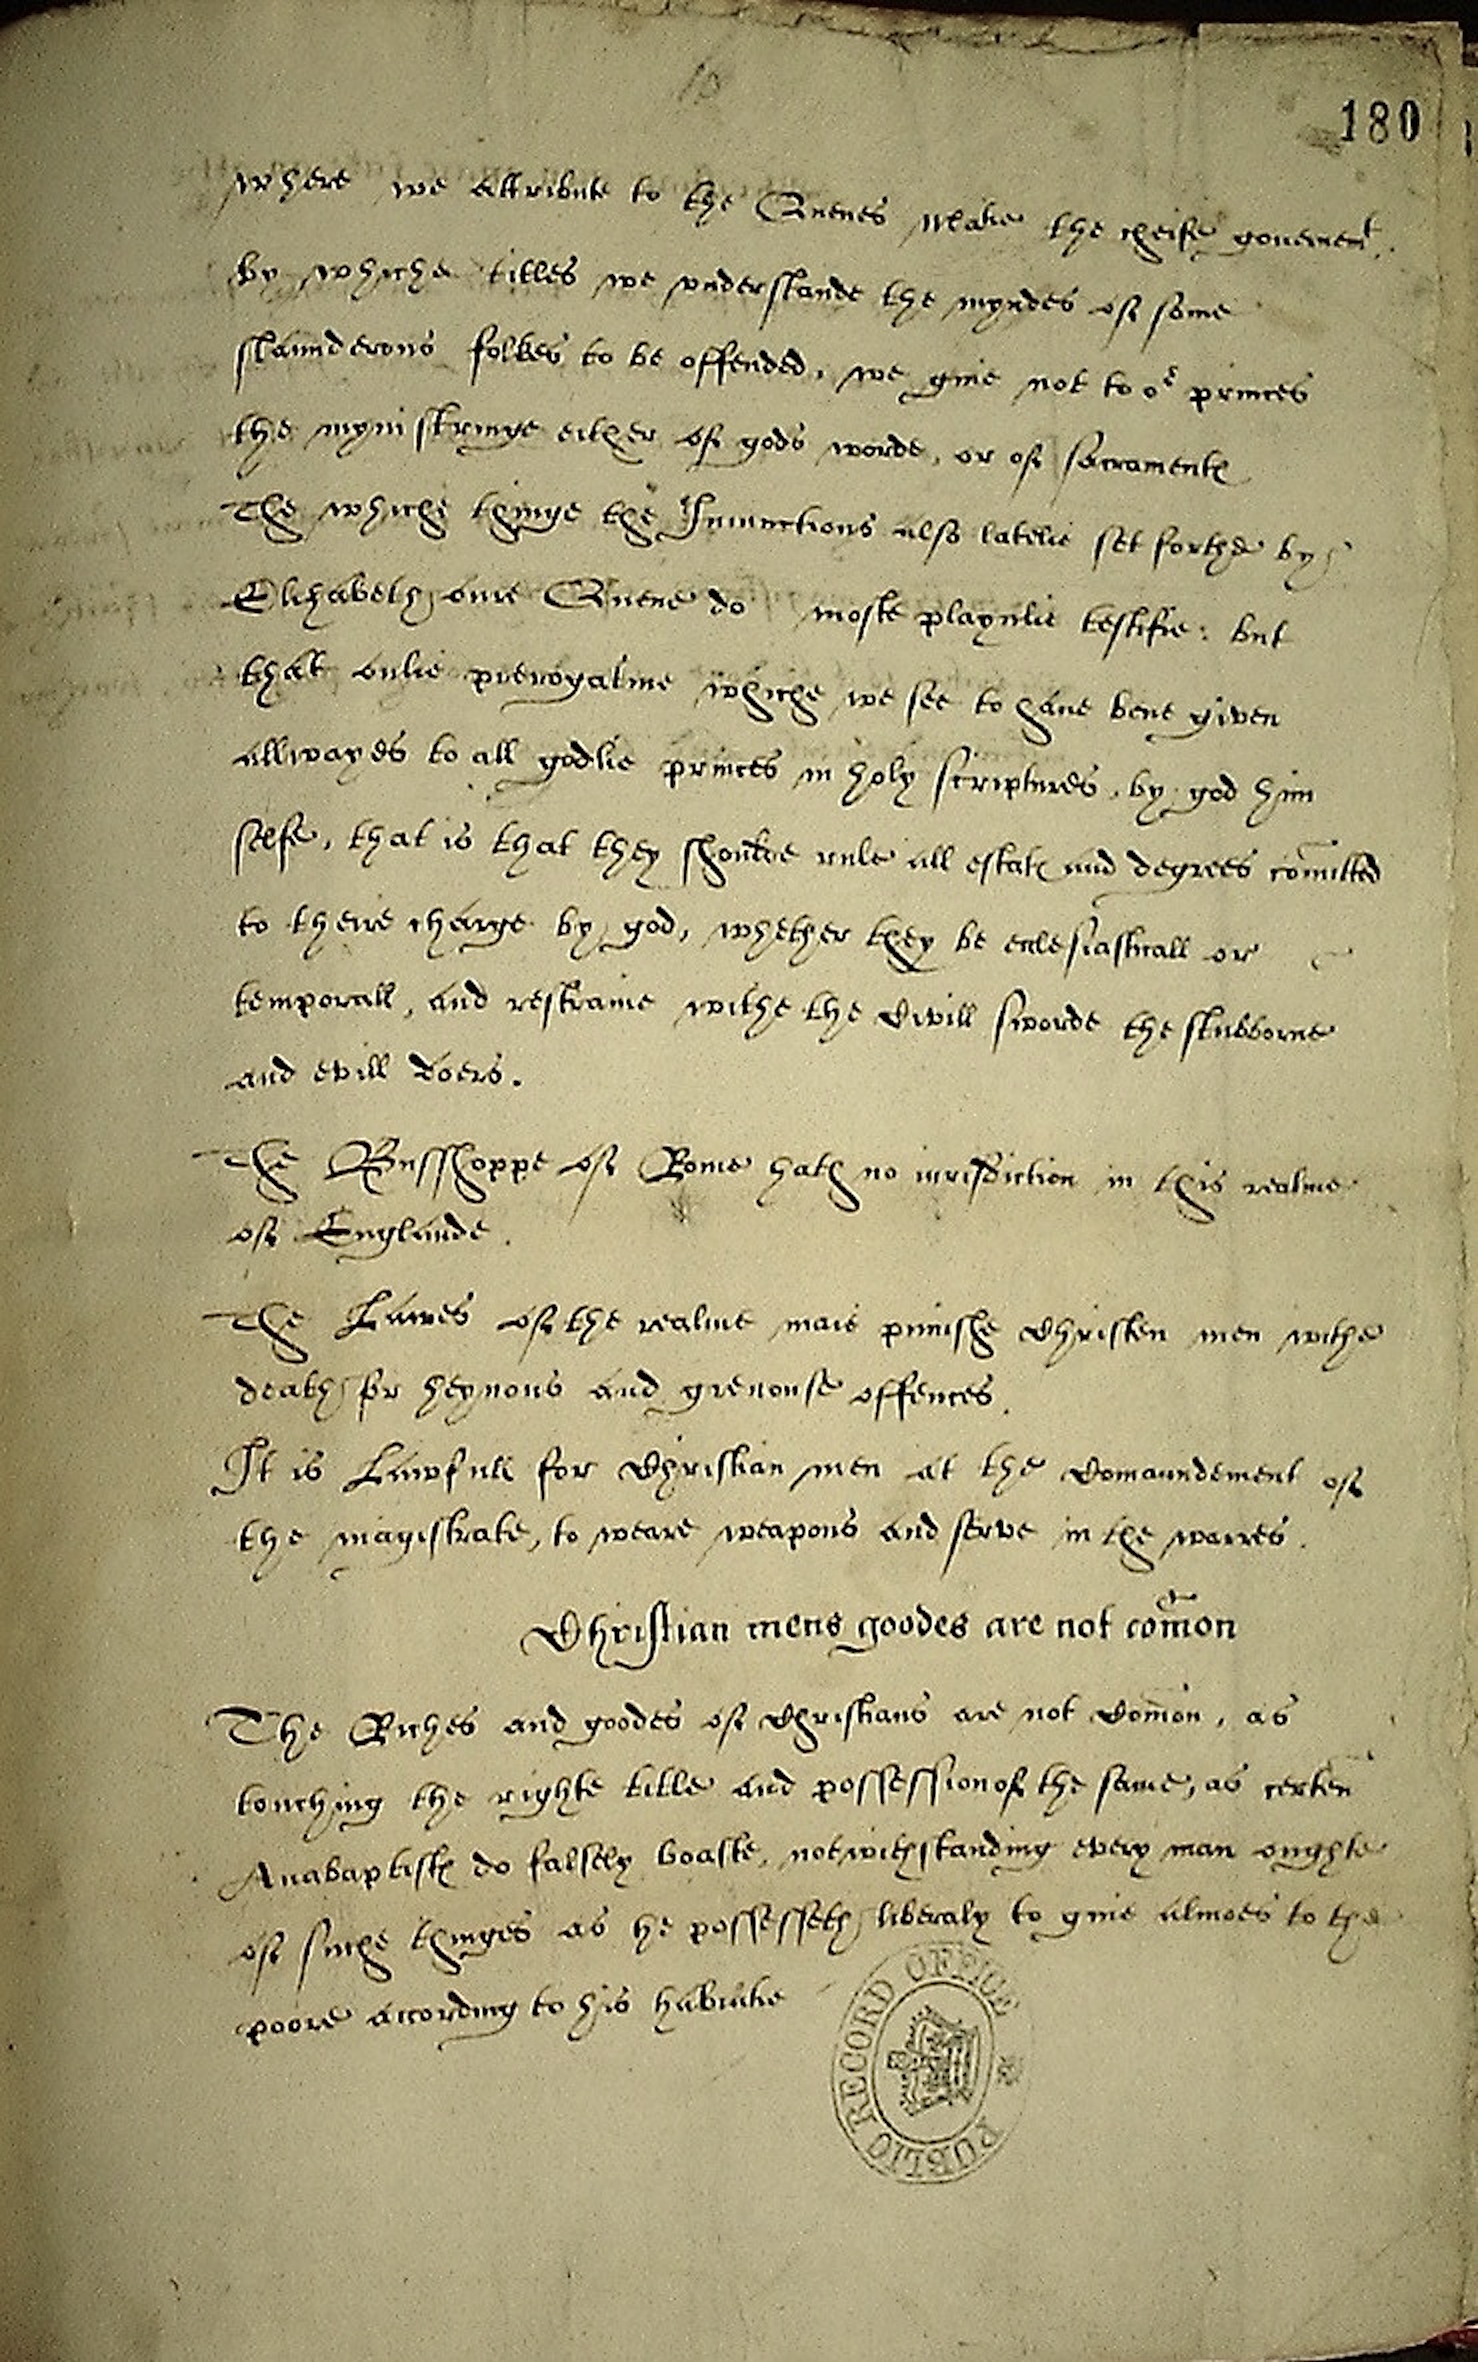 180
where we attribute to the Quenes Matie the cheife gouement.
by whiche titles we understande the myndes of some
slaunderous folkes to be offended, we giue not to or princes
the mynistringe either of gods worde, or of sacraments
The whiche thinge the Iniunctions also latelie set forthe by
Elizabeth oure Quene do moste playnlie testifie: but
that onlie prerogatiue whiche we see to haue bene given
allwayes to all godlie princes in holy scriptures, by god him
selfe, that is that they shoulde rule all estats and degrees comitted
to theire charge by god, whether they be ecclesiasticall or
temporall, and restraine withe the Civill sworde the stubborne
and evill doers.
The Busshoppe of Rome hath no iurisdiction in this realme
of Englande.
The Lawes of the realme maie punishe Christen men withe
death for heynous and greuouse offences.
It is Lawfull for Christian men at the Comaundement of
the magistrate, to weare weapons and serve in the warres.
Christian mens goodes are not comon
The Riches and goodes of Christians are not Comon, as
touching the righte title and possession of the same, as certen
Anabaptists do falsely boaste, notwithstanding every man oughte
of suche thinges as he possesseth liberaly to giue almoes to the
poore according to his habilitie
PUBLIC RECORD OFFICE